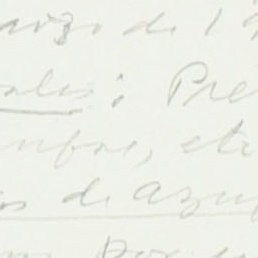 arzo de 1
ales; Pre
mbre, etc
os de azu
Por